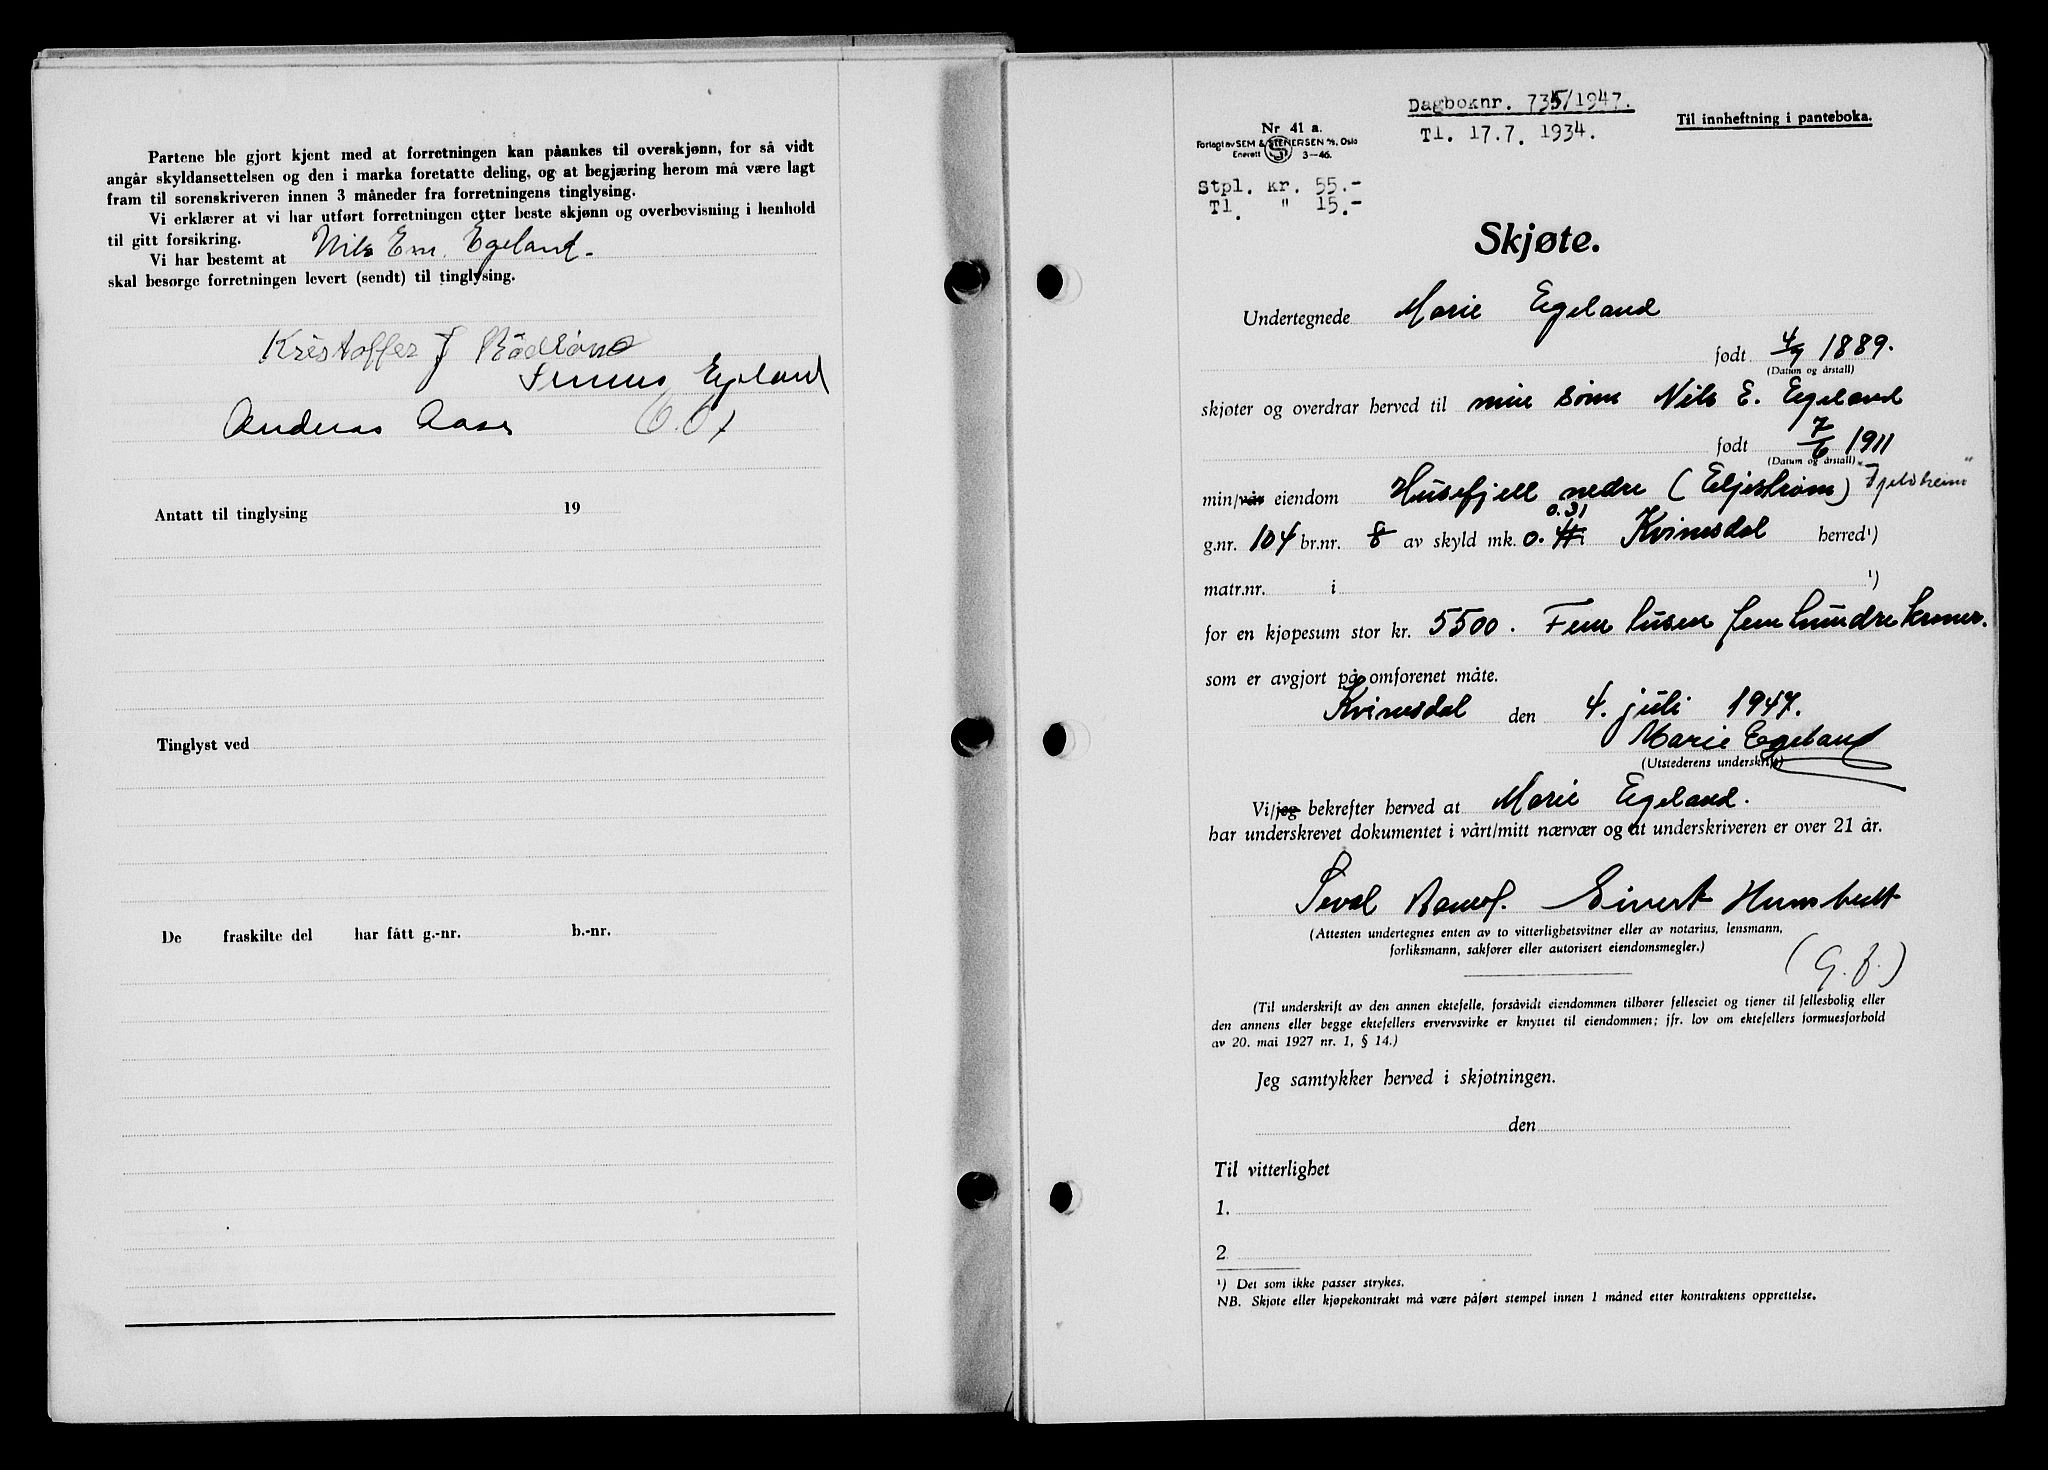 Partene ble gjort kjent med at forretningen kan påankes til overskjønn, for så vidt
angår skyldansettelsen og den i marka foretatte deling, og at begjæring herom må være lagt
fram til sorenskriveren innen 3 måneder fra forretningens tinglysing.
Vi erklærer at vi har utført forretningen etter beste skjønn og overbevisning i henhold
til gitt forsikring.
Vi har bestemt at Nils Em. Egeland.
skal besørge forretningen levert (sendt) til tinglysing.
Kristoffer J
Egeland
Anderas Aase
Antatt til tinglysing 19
Tinglyst ved
De fraskilte del har fått g.-nr. b.-nr.
Dagboknr. 735/1947.
Tl. 17.7. 1934.
Til innheftning i panteboka.
Nr 41 a.
Forlagt av SEM & STENERSEN A/S, Oslo
Enerett S 3-46.
Stpl. kr. 55.-
Tl. " 15.-
Skjøte.
Undertegnede Marie Egeland
født 4/9 1889.
(Datum og årstall)
skjøter og overdrar herved til min sønn Nils E. Egeland
født 7/6 1911
(Datum og årstall)
min/vår eiendom Husefjell nedre (Eljestrøm) "Fjeldheim"
0.31
g.nr. 104 br.nr. 8 av skyld mk. 0. i Kvinesdal herred¹)
matr.nr. i ¹)
for en kjøpesum stor kr. 5500. Fem tusen fem hundre kroner.
som er avgjort på omforenet måte.
Kvinesdal den 4. juli 1947.
Marie Egeland
(Utstederens underskrift)
Vi/jeg bekrefter herved at Marie Egeland.
har underskrevet dokumentet i vårt/mitt nærvær og at underskriveren er over 21 år.
Sivert
(Attesten undertegnes enten av to vitterlighetsvitner eller av notarius, lensmann,
forliksmann, sakfører eller autorisert eiendomsmegler.)
(G. f.)
(Til underskrift av den annen ektefelle, forsåvidt eiendommen tilhører felleseiet og tjener til fellesbolig eller
den annens eller begge ektefellers ervervsvirke er knyttet til eiendommen; jfr. lov om ektefellers formuesforhold
av 20. mai 1927 nr. 1, § 14.)
Jeg samtykker herved i skjøtningen.
den
Til vitterlighet
1.
2
¹) Det som ikke passer strykes.
NB. Skjøte eller kjøpekontrakt må være påført stempel innen 1 måned etter kontraktens opprettelse.